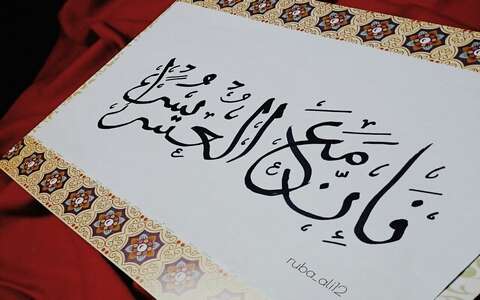 فَإِنَّ مَعَ العُسرِ يُسرًا
ruba_ali12